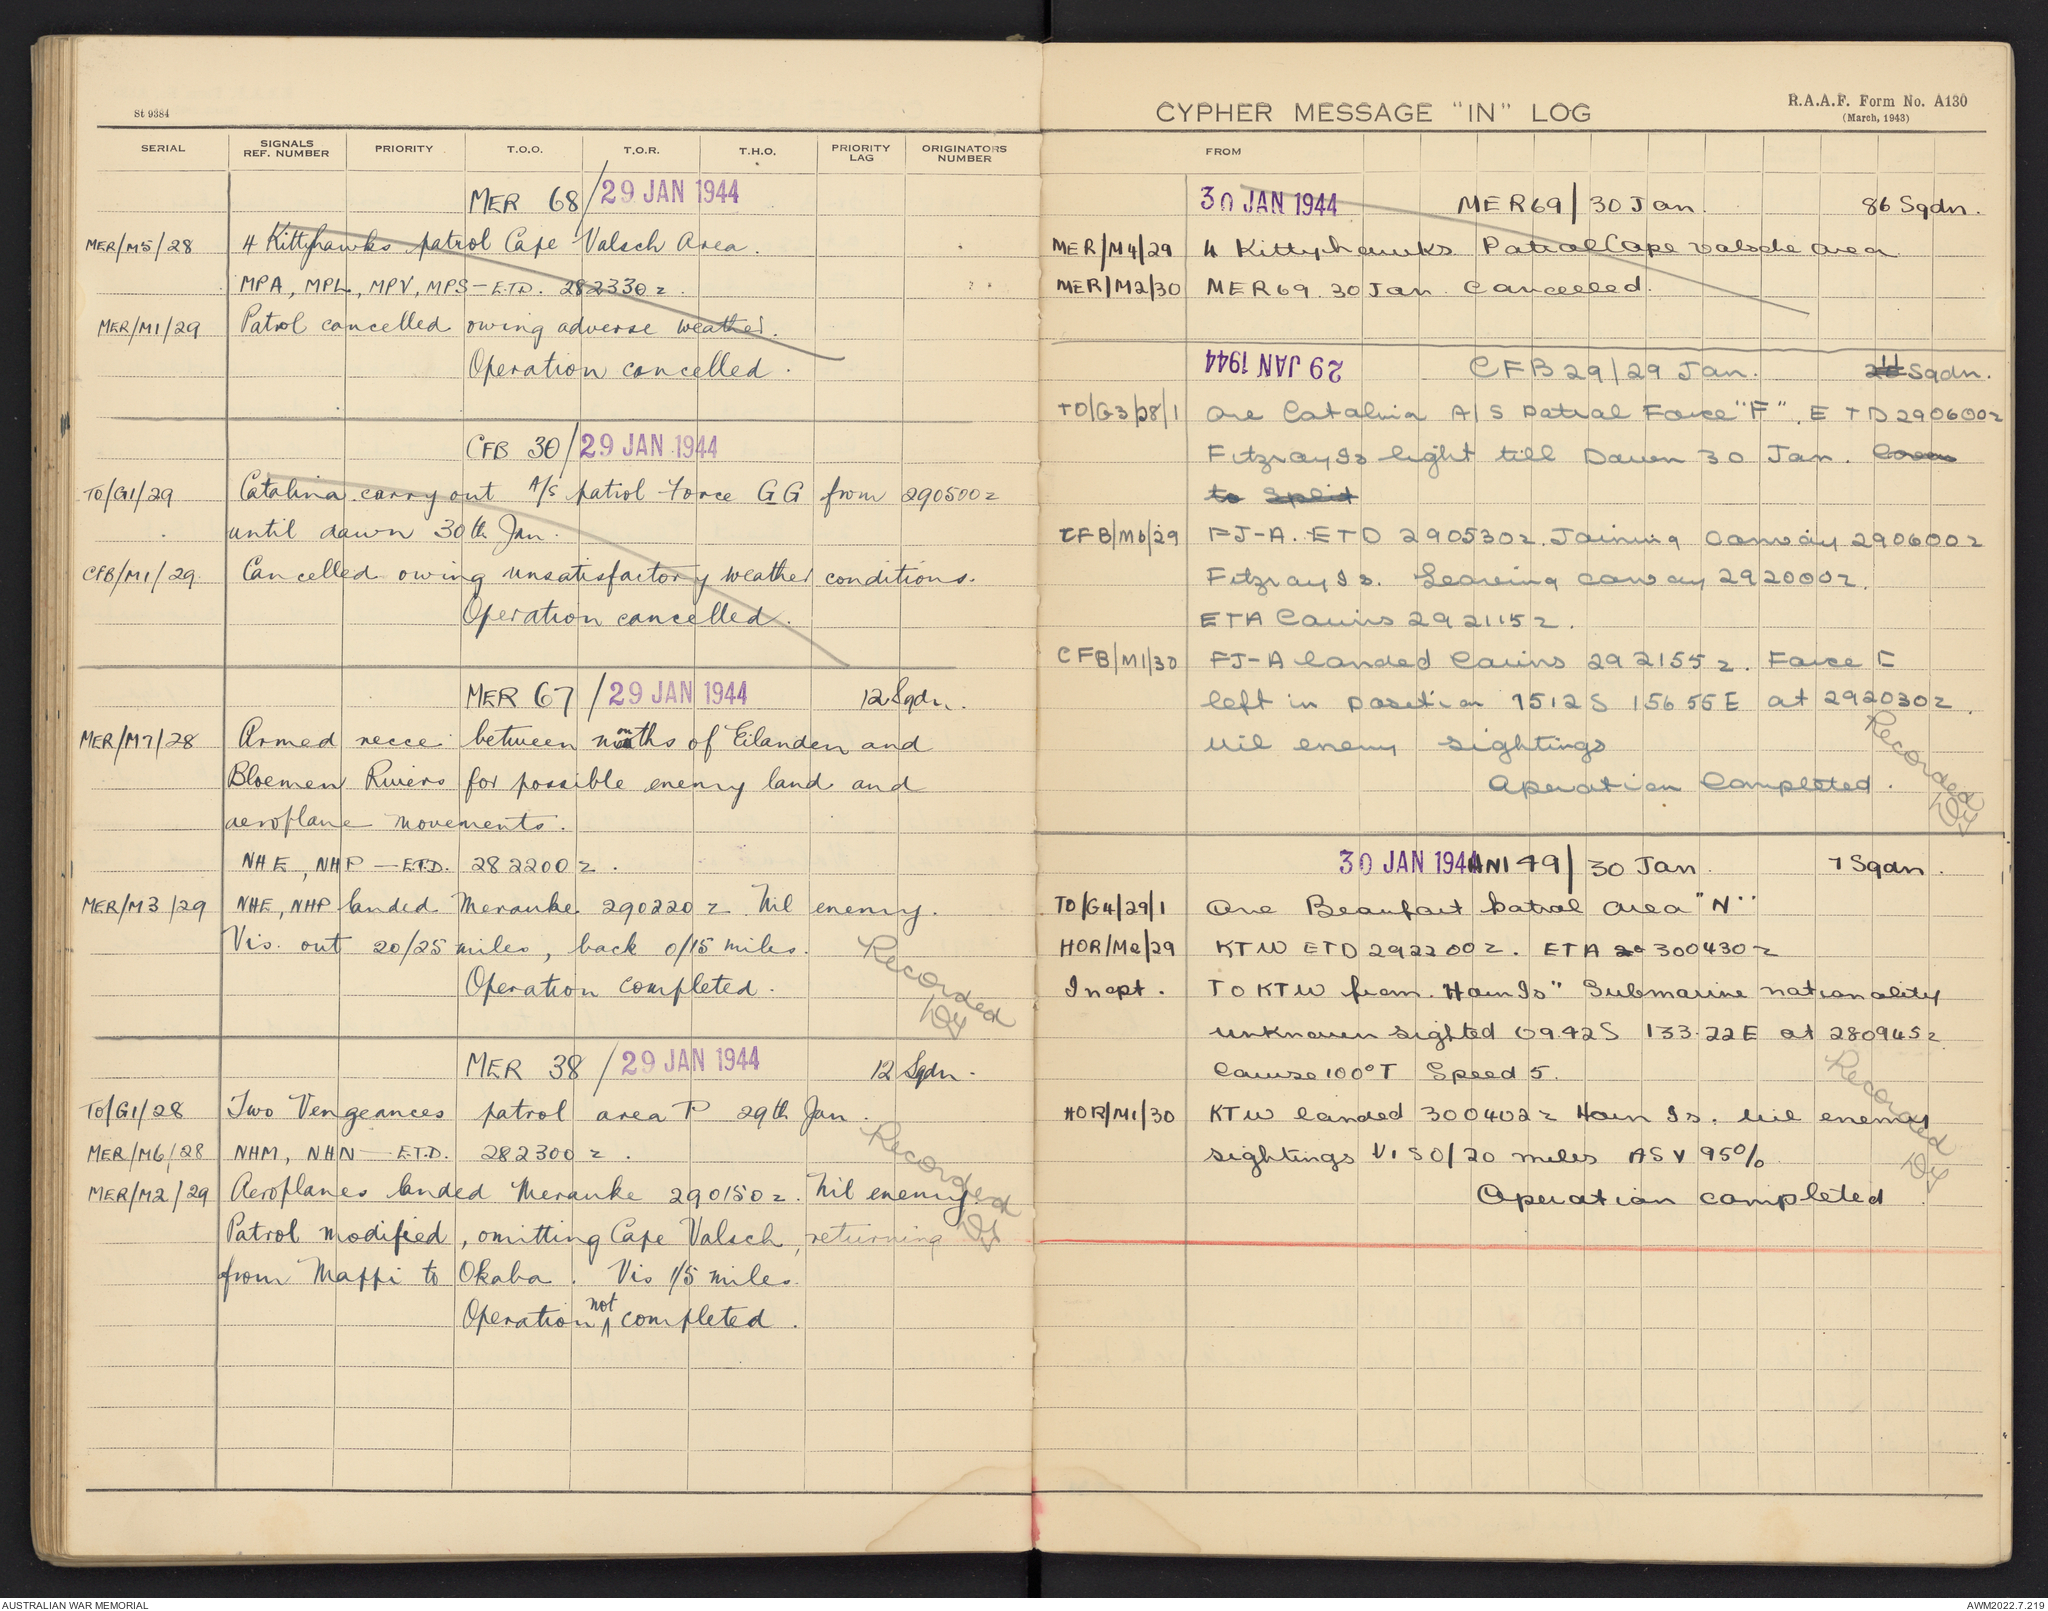 St 9384
SERIAL SIGNALS REF. NUMBER PRIORITY T.O.O. T.O.R. T.H.O. PRIORITY LAG ORIGINATORS NUMBER
MER 68/29 JAN 1944
MER/M5/28 4 Kittyhawks patrol Cape Valsch Area.
MPA, MPL, MPV, MPS - E.T.D. 282330z.
MER/M1/29 Patrol cancelled owing adverse weather.
Operation cancelled.
CFB 30/29 JAN 1944
TO/G1/29 Catalina carry out A/S patrol Force GG from 290500z
until dawn 30th Jan.
CFB/M1/29. Cancelled owing unsatisfactory weather conditions.
Operation cancelled.
MER 67/29 JAN 1944 12 Sqdn.
MER/M7/28 Armed recce between mouths of Eilanden and
Bloemen Rivers for possible enemy land and
aeroplane movements.
NHE, NHP — E.T.D. 282200z.
MER/M3/29 NHE, NHP landed Merauke 290220z. Nil enemy.
Vis. out 20/25 miles, back 0/15 miles.
Operation completed.
Recorded
MER 38/29 JAN 1944 12 Sqdn.
TO/G1/28 Two Vengeances patrol area P 29th Jan.
MER/M6/28 NHM, NHN — E.T.D. 282300z.
MER/M2/29 Aeroplanes landed Merauke 290150z. Nil enemy.
Patrol modified, omitting Cape Valsch, returning
from Mappi to Okaba. Vis 1/5 miles.
Operation not completed.
Recorded
CYPHER MESSAGE "IN" LOG
R.A.A.F. Form No. A130
(March, 1943)
FROM
30 JAN 1944 MER69/30 Jan. 86 Sqdn.
MER/M4/29 4 Kittyhawks Patrol Cape Valsche area
MER/M2/30 MER69 30 Jan. Cancelled.
29 JAN 1944 CFB29/29 Jan. Sqdn.
TO/G3/28/1 One Catalina A/S Patrol Force "F". ETD 290600z
Fitzroy Is light till Dawn 30 Jan.
to Split
CFB/M6/29 FJ-A. ETD 290530z. Joining Convoy 290600z
Fitzroy Is. Leaving convoy 292000z.
ETA Cairns 292115z.
CFB/M1/30 FJ-A landed Cairns 292155z. Force F
left in position 1512S 15655E at 292030z.
Nil enemy sightings
Operation Completed.
Recorded
30 JAN 1944 ANI 49/30 Jan. 7 Sqdn.
TO/G4/29/1 One Beaufort Patrol area "N"
HOR/M2/29 KTW ETD 292200z. ETA 300430z
Incpt. To KTW from Horn Is" Submarine nationality
unknown sighted 09.42S 133.22E at 280945z
Course 100°T Speed 5.
HOR/M1/30 KTW landed 300402z Horn Is. Nil enemy
sightings Vis 0/20 miles ASV 95%
Operation completed
Recorded
AUSTRALIAN WAR MEMORIAL
AWM2022.7.219